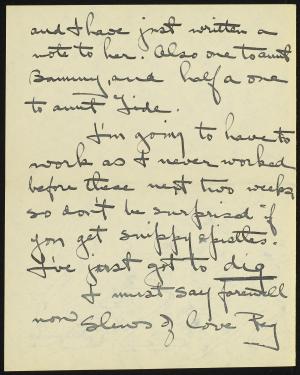 and I have just written a
note to her. Also one to aunt
Bammy, and half a one
to aunt Tide.
I'm going to have to
work as I never worked
before these next two weeks
so don't be surprised if
you get snippy epistles.
I've just got to dig
I must say farewell
now Slews of love Peg